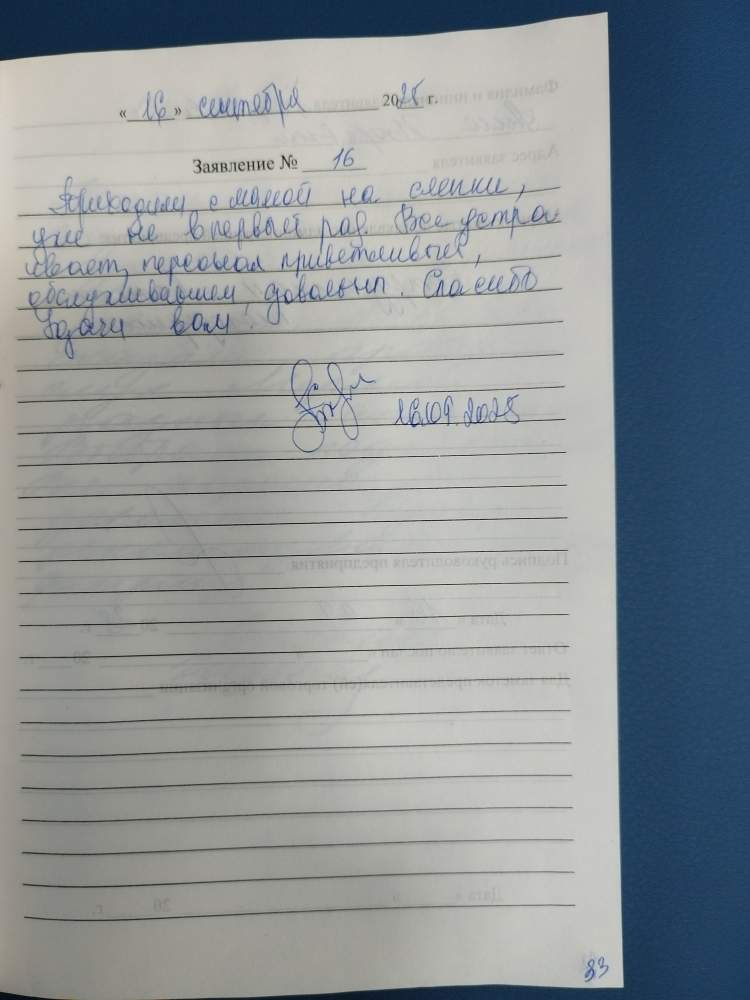 « 16 » сентября 2025 г.
Заявление № 16
Приходили с мамой на слепки,
уже не в первый раз. Все устраи
вает, персонал приветливый,
обслуживанием довольны. Спасибо
Удачи вам.
16.09.2025
33